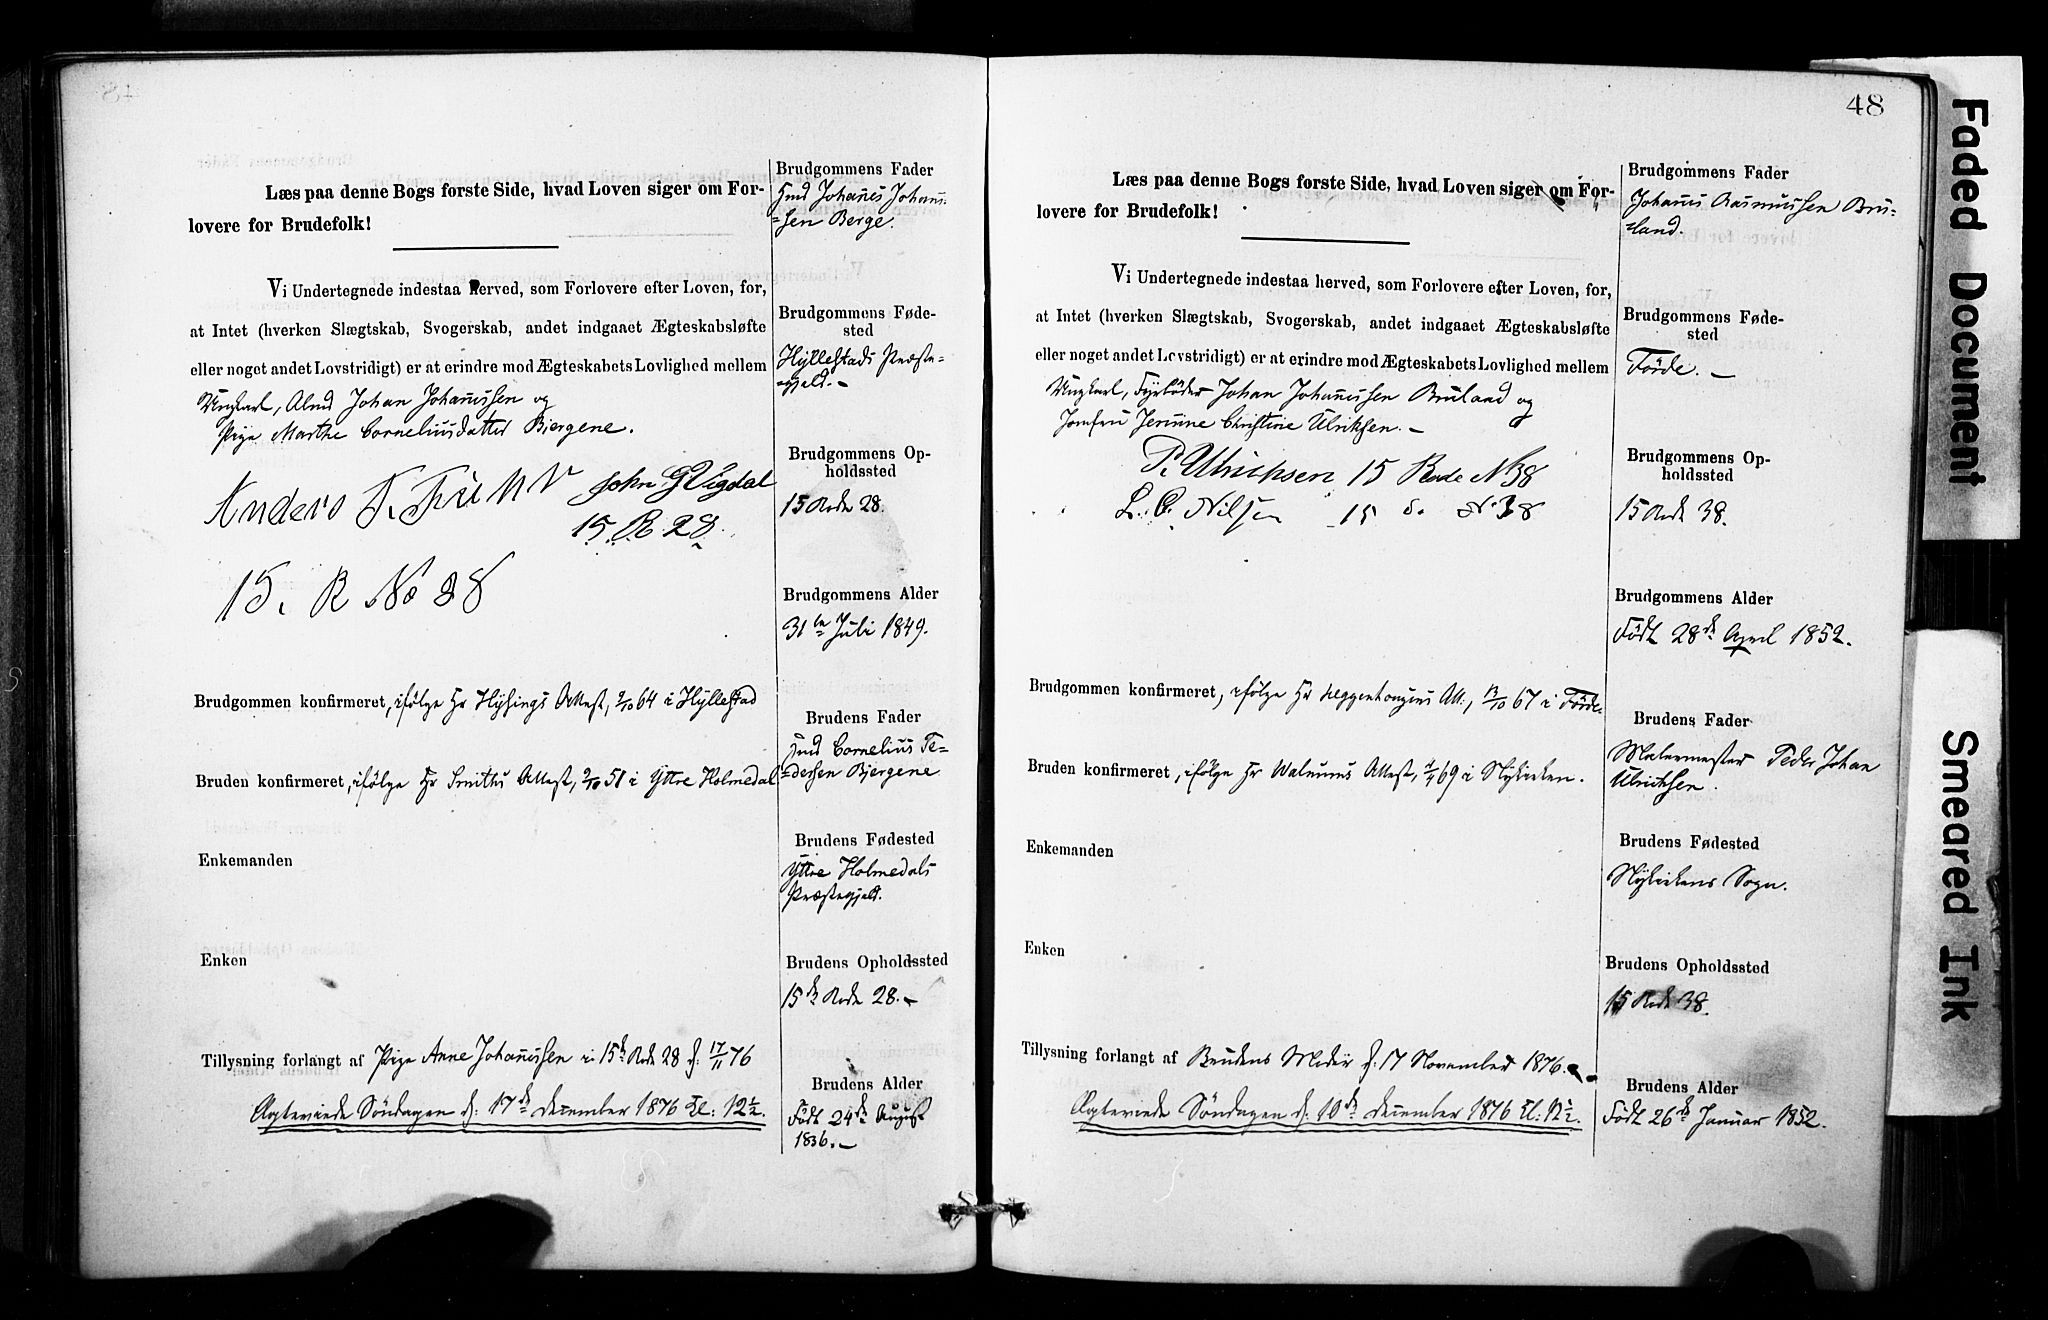 Læs paa denne Bogs første Side, hvad Loven siger om For-
lovere for Brudefolk!
Vi Undertegnede indestaa herved, som Forlovere efter Loven, for,
at Intet (hverken Slægtskab, Svogerskab, andet indgaaet Ægteskabsløfte
eller noget andet Lovstridigt) er at erindre mod Ægteskabets Lovlighed mellem
Ungkarl, Johan Johannssen og
Pige Marthe Corneliusdatter Bjergene.
Anders T. John G Vigdal
15. R. 28.
15. R No 28
Brudgommen konfirmeret, ifølge Hr Hysings Attest, 2/10 64 i Hyllestad
Bruden konfirmeret, ifølge Hr Smiths Attest, 9/10 51 i Yttre Holmedal
Enkemanden
Enken
Tillysning forlangt af Pige Anne Johannssen i 15de Rode 28 d: 17/11 76
Ægteviede Søndagen d: 17de December 1876 Kl: 12½.
Brudgommens Fader
Gmd Johanes Johann-
=sen Berge.
Brudgommens Føde-
sted
Hyllestads Præste-
gjeld.-
Brudgommens Op-
holdssted
15 Rode 28.
Brudgommens Alder
31te Juli 1849.
Brudens Fader
Gmd Cornelius Te=
=dersen Bjergene
Brudens Fødested
Yttre Holmedals
Præstegjeld.
Brudens Opholdssted
15de Rode 28.-
Brudens Alder
Født 24de August
1836.-
48
Læs paa denne Bogs første Side, hvad Loven siger om For-
lovere for Brudefolk!
Vi Undertegnede indestaa herved, som Forlovere efter Loven, for,
at Intet (hverken Slægtskab, Svogerskab, andet indgaaet Ægteskabsløfte
eller noget andet Lovstridigt) er at erindre mod Ægteskabets Lovlighed mellem
Ungkarl, Fyrbøder Johan Johannssen Bruland og
Jomfru Christine Ulriksen.-
P. Ulrichsen 15 Rode N 38
L. C. Nilsen 15 d. N. 38
Brudgommen konfirmeret, ifølge Hr Att:, 13/10 67 i Førde.
Bruden konfirmeret, ifølge Hr Walnums Attest, 69, i Nykirken.
Enkemanden
Enken
Tillysning forlangt af Brudens Moder d: 17 November 1876.
Ægteviede Søndagen d: 10de December 1876 Kl: 12½.
Brudgommens Fader
Johanes Rasmussen Bru=
=land.
Brudgommens Føde-
sted
Førde.-
Brudgommens Op-
holdssted
15 Rode 38.
Brudgommens Alder
Født 28de April 1852.
Brudens Fader
Malermester Peder Johan
Ulrichsen.
Brudens Fødested
Nykirkens Sogn.
Brudens Opholdssted
15 Rode 38.
Brudens Alder
Født 26de Januar 1852.
Faded Document
Smeared Ink